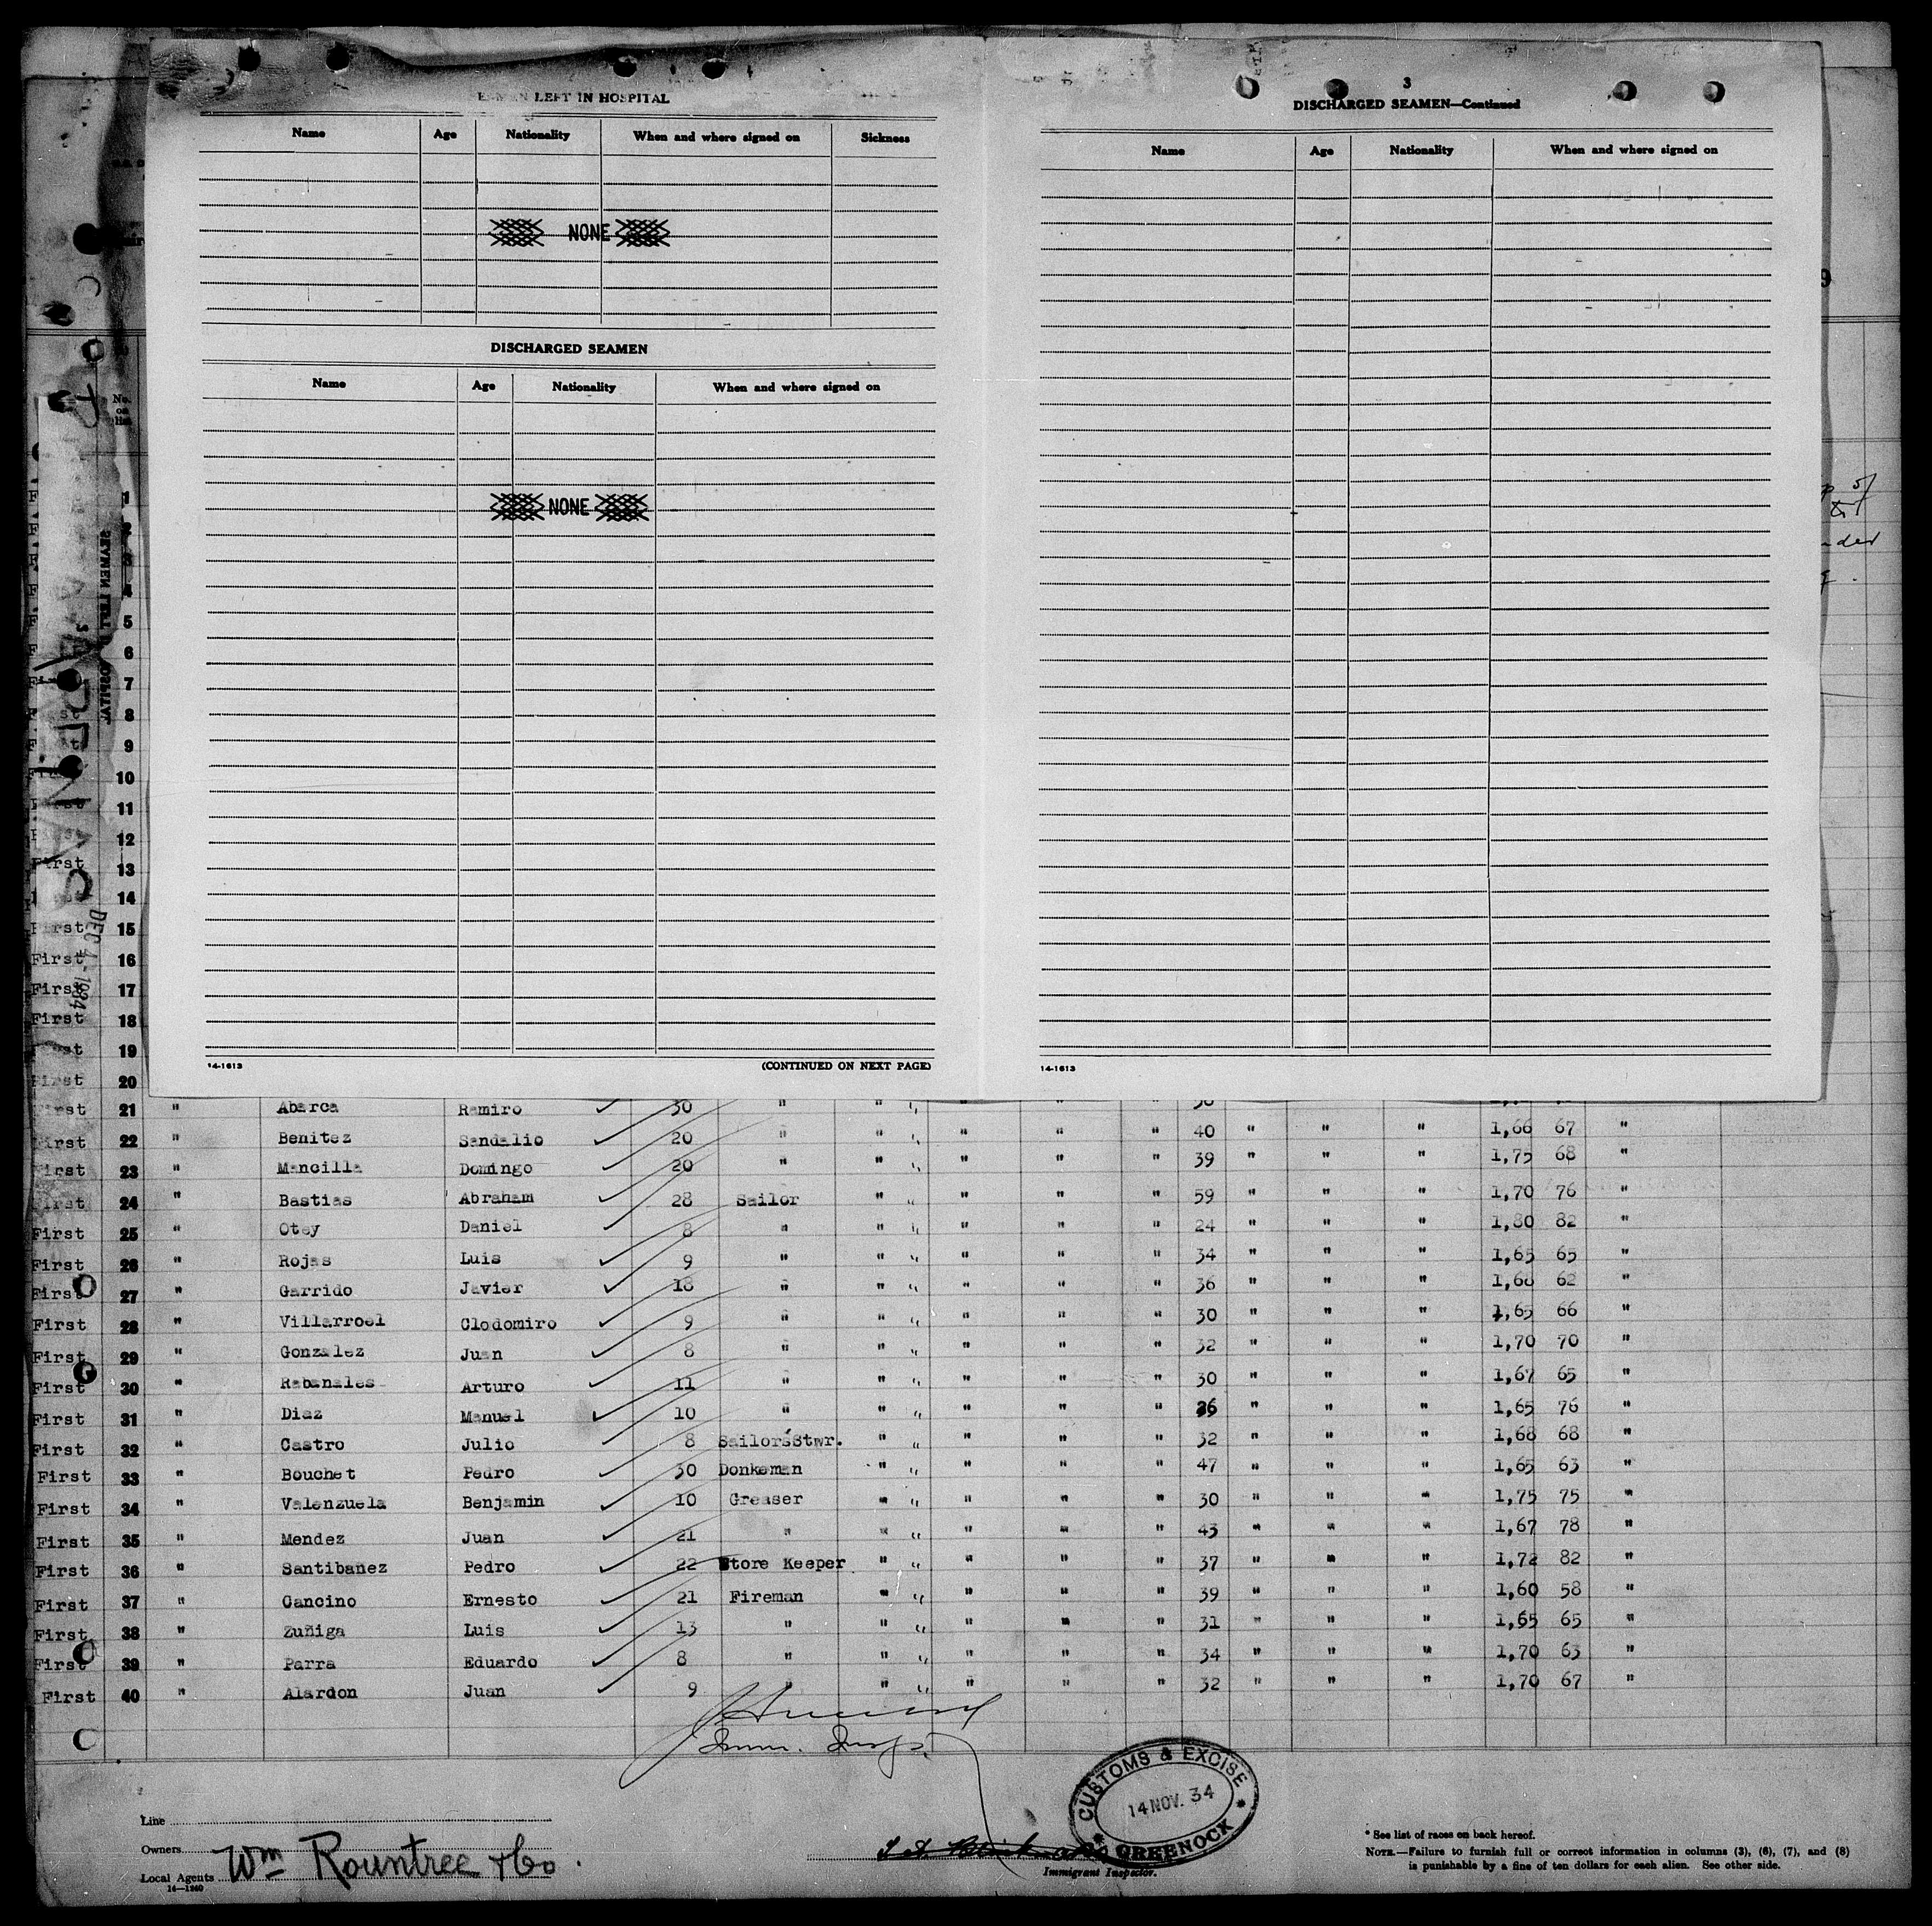 LEFT IN HOSPITAL
Name Age Nationality When and where signed on Sickness
NONE
DISCHARGED SEAMEN
Name Age Nationality When and where signed on
NONE
14-1613 (CONTINUED ON NEXT PAGE)
3
DISCHARGED SEAMEN—Continued
Name Age Nationality When and where signed on
14-1613
No. on list
1
2
3
4
5
6
7
8
9
10
11
12
First 13
14
First 15
First 16
First 17
First 18
19
First 20
DEC 1934
First 21 " Abarca Ramiro 30 " " " " " "
First 22 " Benitez Sandalio 20 " " " " " " 40 " " " 1,66 67 "
First 23 " Mancilla Domingo 20 " " " " " " 39 " " " 1,75 68 "
First 24 " Bastias Abraham 28 Sailor " " " " " 59 " " " 1,70 76 "
First 25 " Otey Daniel 8 " " " " " " 24 " " " 1,80 82 "
First 26 " Rojas Luis 9 " " " " " " 34 " " " 1,65 65 "
First 27 " Garrido Javier 18 " " " " " " 36 " " " 1,60 62 "
First 28 " Villarroel Clodomiro 9 " " " " " " 30 " " " 1,65 66 "
First 29 " Gonzalez Juan 8 " " " " " " 32 " " " 1,70 70 "
First 30 " Rabanales Arturo 11 " " " " " " 30 " " " 1,67 65 "
First 31 " Diaz Manuel 10 " " " " " " 36 " " " 1,65 76 "
First 32 " Castro Julio 8 Sailors'Stwr. " " " " " 32 " " " 1,68 68 "
First 33 " Bouchet Pedro 30 Donkeman " " " " " 47 " " " 1,65 63 "
First 34 " Valenzuela Benjamin 10 Greaser " " " " " 30 " " " 1,75 75 "
First 35 " Mendez Juan 21 " " " " " " 43 " " " 1,67 78 "
First 36 " Santibanez Pedro 22 Store Keeper " " " " " 37 " " " 1,72 82 "
First 37 " Cancino Ernesto 21 Fireman " " " " " 39 " " " 1,60 58 "
First 38 " Zuñiga Luis 13 " " " " " " 31 " " " 1,65 65 "
First 39 " Parra Eduardo 8 " " " " " " 34 " " " 1,70 63 "
First 40 " Alardon Juan 9 " " " " " " 32 " " " 1,70 67 "
Imm. Insp.
CUSTOMS & EXCISE
14 NOV. 34
GREENOCK
Line
Owners
Local Agents Wm Rountree & Co.
14-1240
Immigrant Inspector.
* See list of races on back hereof.
NOTE.—Failure to furnish full or correct information in columns (3), (6), (7), and (8)
is punishable by a fine of ten dollars for each alien. See other side.